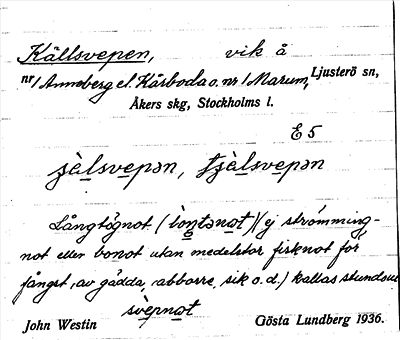 Källsvepen, vik å
nr 1 Anneberg el. Kårboda o. nr 1 Marum, Ljusterö sn,
Åkers skg, Stockholms l.
E 5
Långtögnot (ej strömming-
not eller bonot utan medelstor fisknot för
fångst av gädda, abborre, sik o.d.) kallas stundom
svepnot
John Westin Gösta Lundberg 1936.